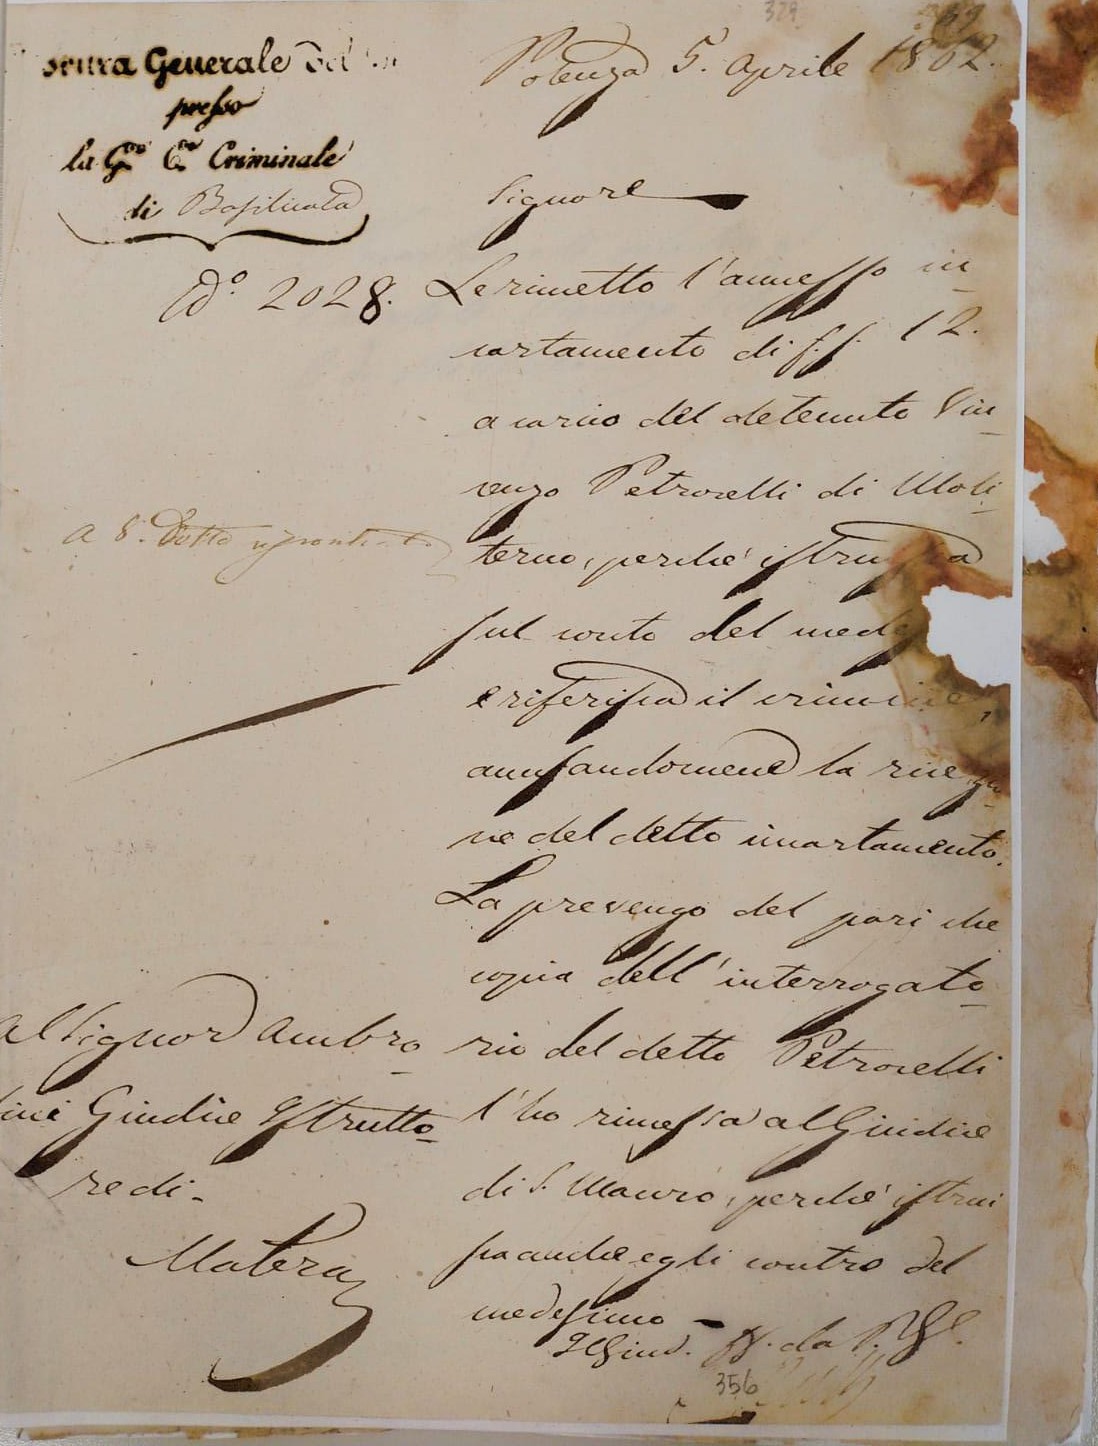 329
Generale del
presso
la Gn. Cte. Criminale
di Basilicata
Potenza 5. Aprile 1862.
Signore
N.° 2028.
Le rimetto l'annesso in
cartamento di f.f. 12.
a carico del detenuto Vin
cenzo Petrocelli di Moli
terno, perchè istruisca
sul conto del
e riferisca il
accusandomene la rice
ne del detto incartamento.
La prevengo del pari che
copia dell'interrogato
rio del detto Petrocelli
l'ho rimessa al Giudice
di S. Mauro, perchè istrui
sca anche egli contro del
medesimo
Il Giud. ff. da P. Gle.
356
a 8. Detto
Al Signor Ambro
sini Giudice Istrutto
re di
Matera